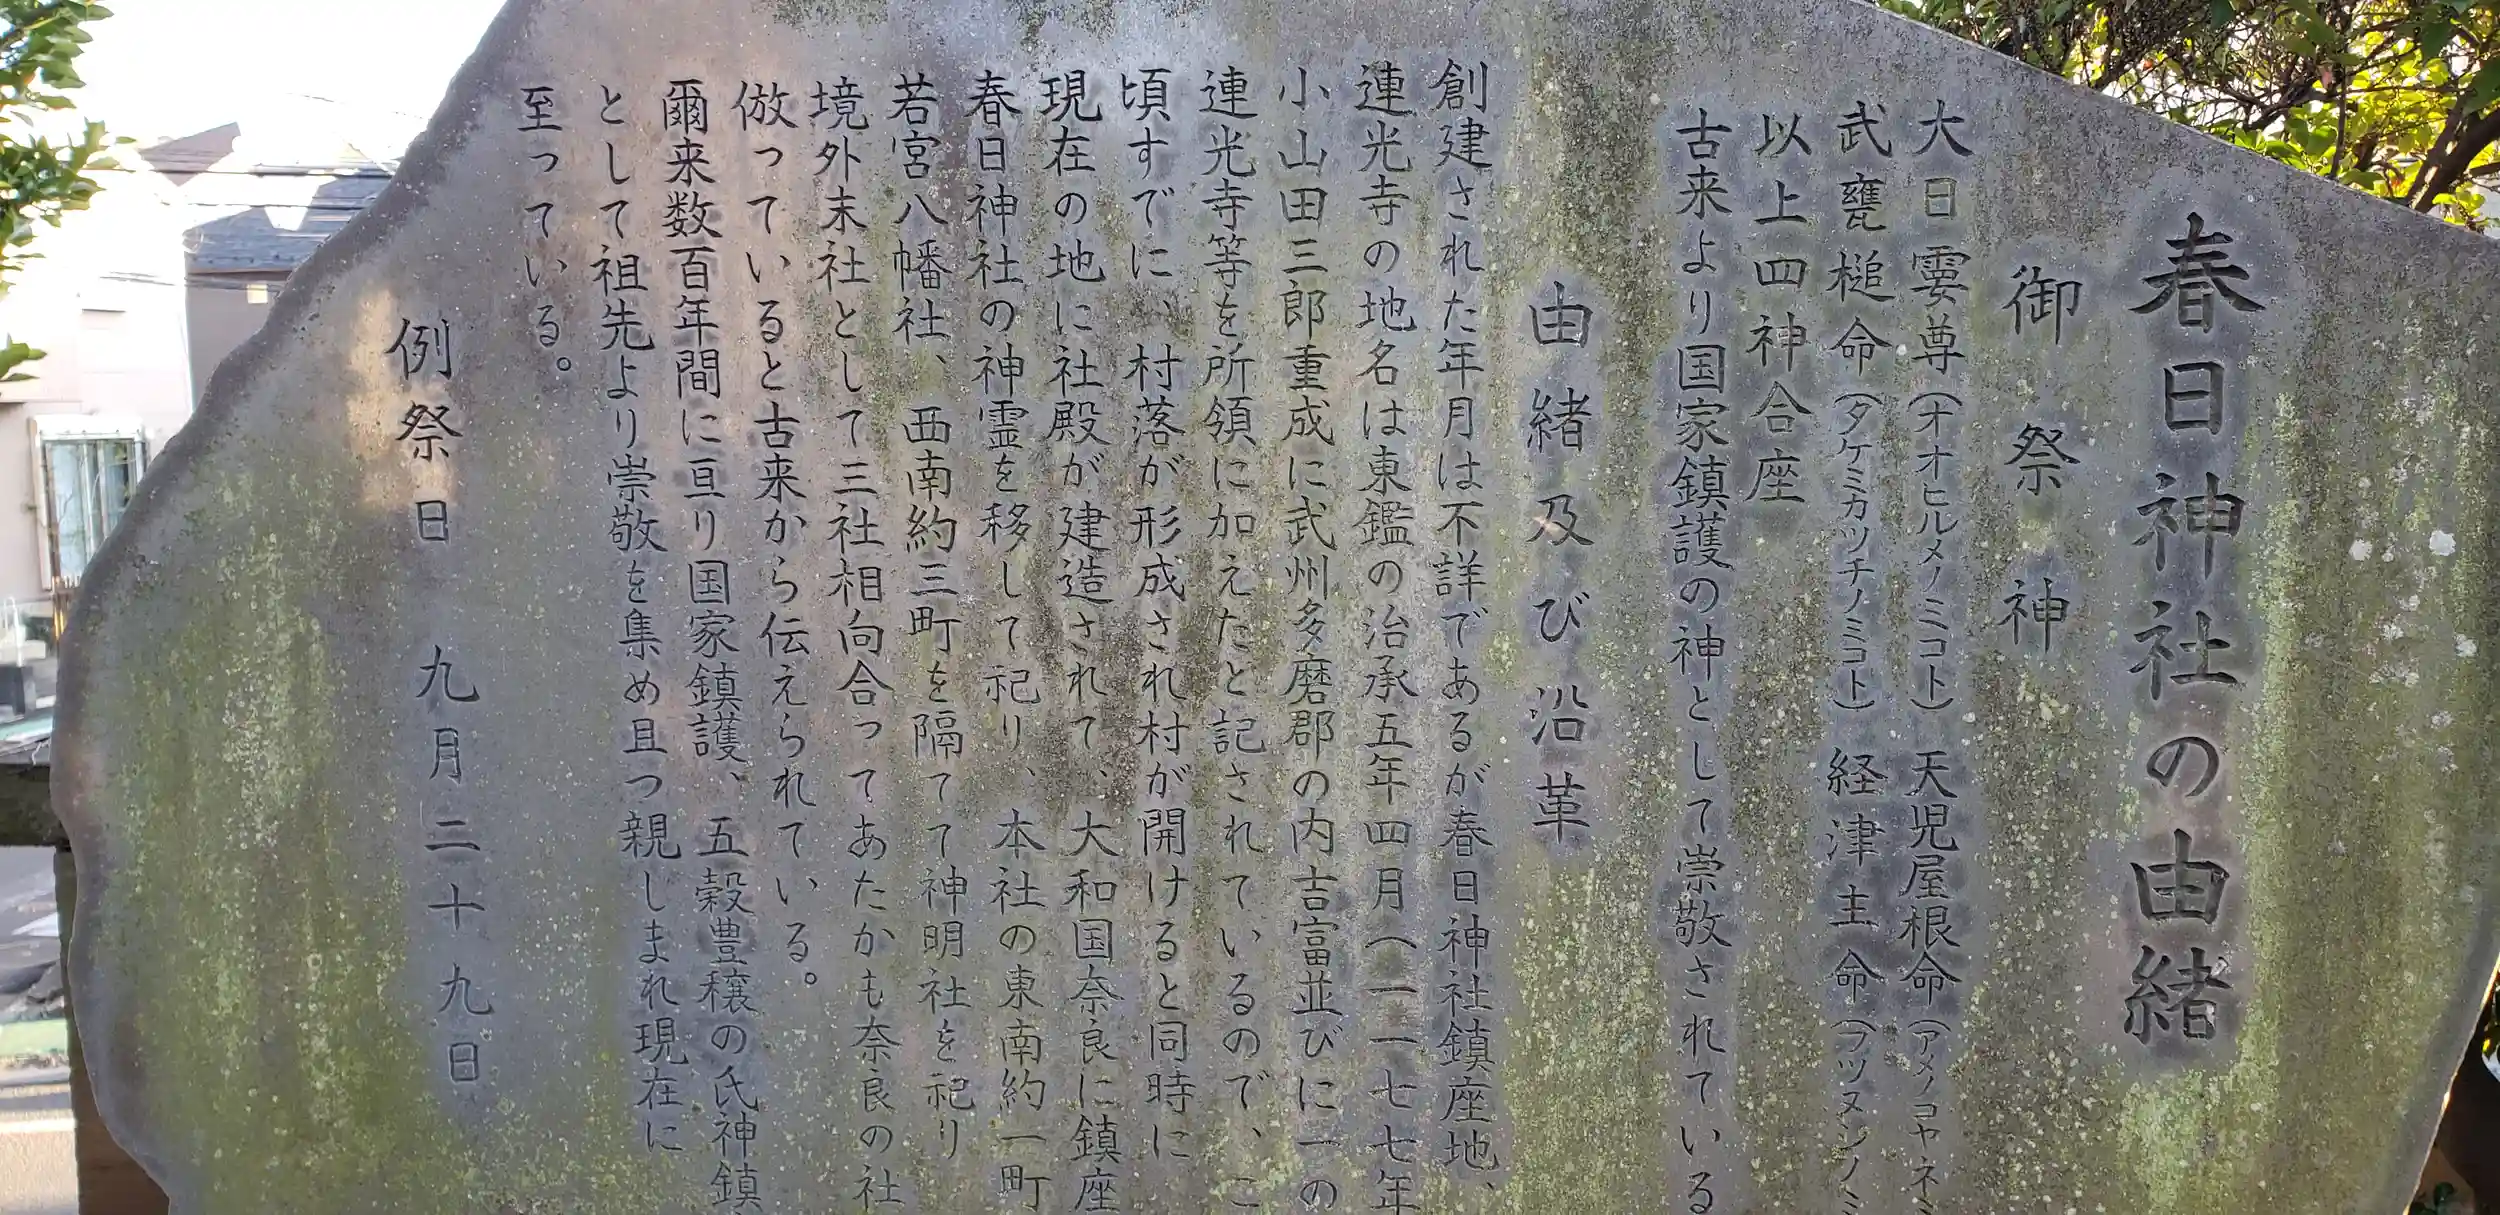 春日神社の由緒
御祭神
大日孁尊(オオヒルメノミコト) 天児屋根命(アメノコヤネ
武甕槌命(タケミカツチノミコト) 経津主命(フツヌシノミ
以上四神合座
古来より国家鎮護の神として崇敬されている
由緒及び沿革
創建された年月は不詳であるが春日神社鎮座地、
連光寺の地名は東鑑の治承五年四月(一一七七年
小山田三郎重成に武州多磨郡の内吉富並びに一の
連光寺等を所領に加えたと記されているので、こ
頃すでに、村落が形成され村が開けると同時に
現在の地に社殿が建造されて、大和国奈良に鎮座
春日神社の神霊を移して祀り、本社の東南約一町
若宮八幡社、西南約三町を隔て神明社を祀り
境外末社として三社相向合ってあたかも奈良の社
倣っていると古来から伝えられている。
爾来数百年間に亘り国家鎮護、五穀豊穣の氏神鎮
として祖先より崇敬を集め且つ親しまれ現在に
至っている。
例祭日 九月二十九日